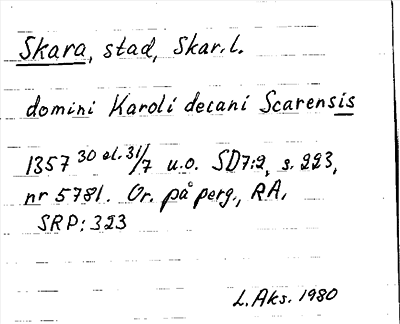 Skara, stad, Skar.l.
domini Karoli decani Scarensis
1357 30 el. 31/7 u.o. SD7:2, s. 223,
nr 5781. Or. på perg., RA,
SRP: 323
L. Aks. 1980